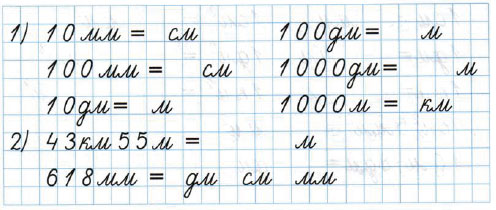 1) 10мм = см 100дм = м
100мм = см 1000дм = м
10дм = м 1000м = км
2) 43км 55м = м
618мм = дм см мм